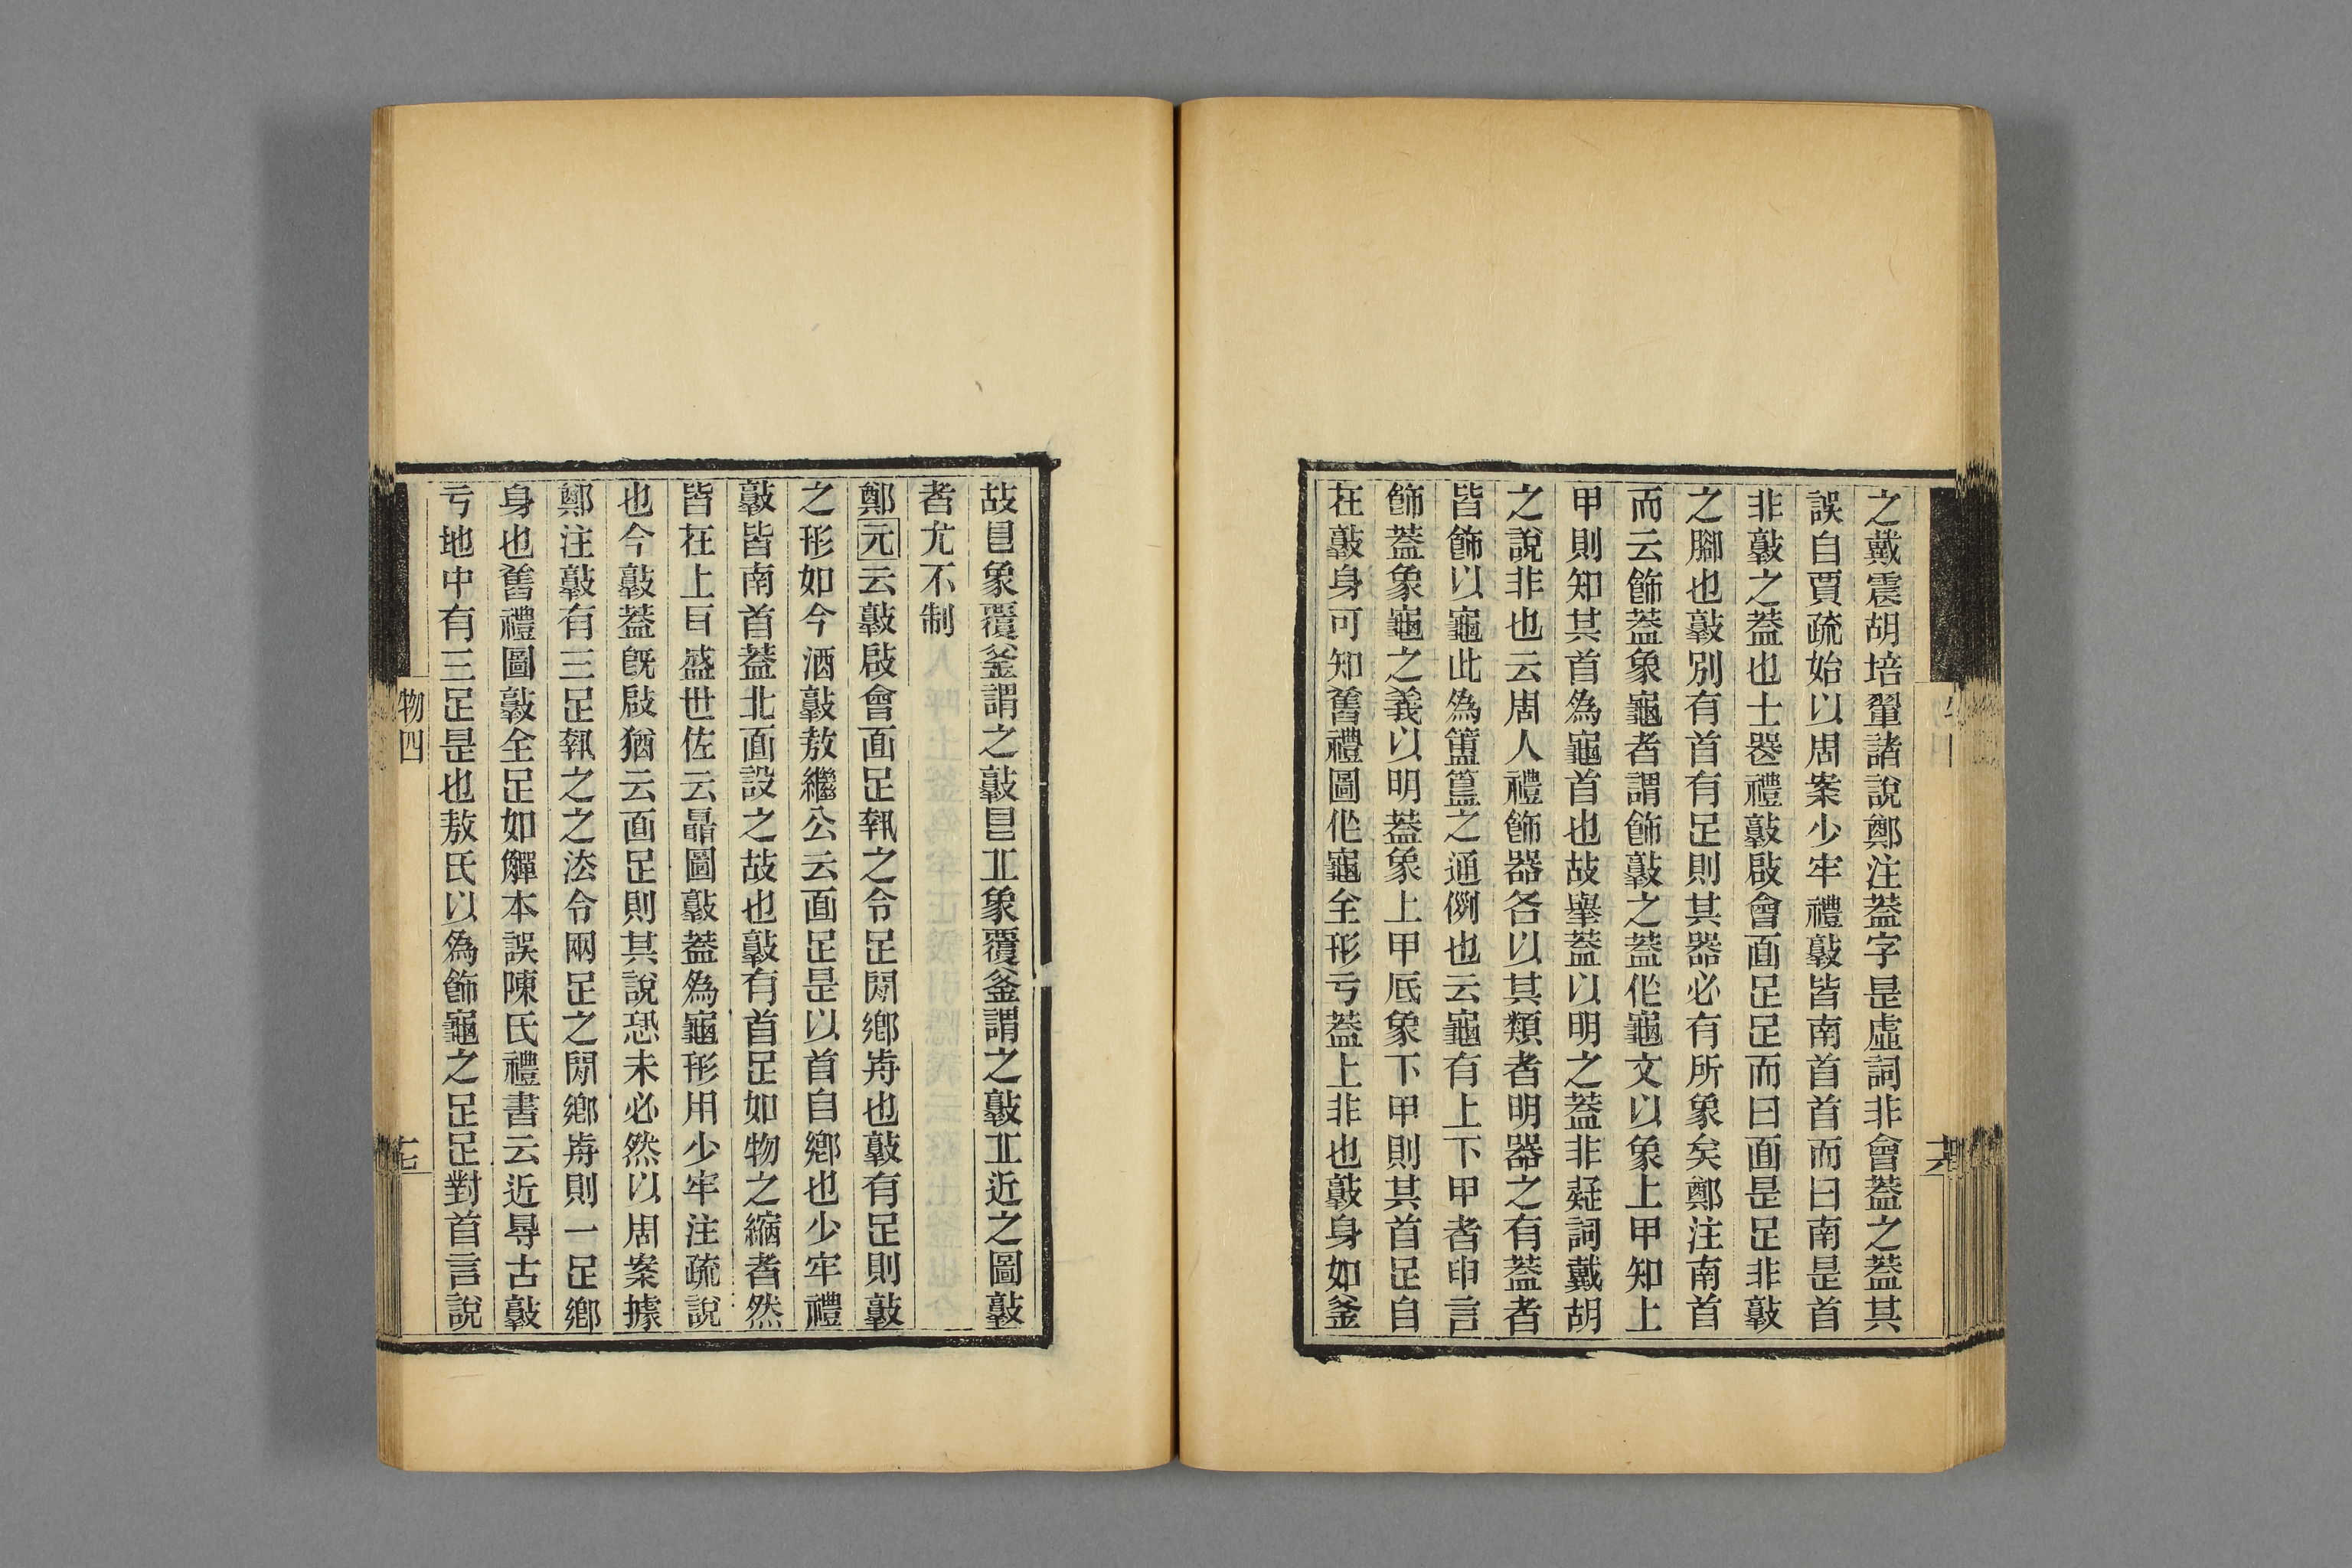 之戴震胡培翬諸說鄭注蓋字是虛詞非會蓋之蓋其
誤自賈疏始以周案少牢禮敦皆南首首而曰南是首
非敦之蓋也士喪禮敦啟會面足足而曰面是足非敦
之腳也敦別有首有足則其器必有所象矣鄭注南首
而云飾蓋象龜者謂飾敦之蓋作龜文以象上甲知上
甲則知其首為龜首也故舉蓋以明之蓋非疑詞戴胡
之說非也云周人禮飾器各以其類者明器之有蓋者
皆飾以龜此為簠簋之通例也云龜有上下甲者申言
飾蓋象龜之義以明蓋象上甲底象下甲則其首足自
在敦身可知舊禮圖作龜全形亏蓋上非也敦身如釜
十六
故㠯象覆釜謂之敦㠯丠象覆釜謂之敦丠近之圖敦
者尤不制
鄭元云敦啟會面足執之令足閒鄉歬也敦有足則敦
之形如今酒敦敖繼公云面足是以首自鄉也少牢禮
敦皆南首蓋北面設之故也敦有首足如物之縮者然
皆在上㠯盛世佐云聶圖敦蓋為龜形用少牢注疏說
也今敦蓋既啟猶云面足則其說恐未必然以周案據
鄭注敦有三足執之之法令兩足之閒鄉歬則一足鄉
身也舊禮圖敦全足如觶本誤陳氏禮書云近㝵古敦
亏地中有三足是也敖氏以為飾龜之足足對首言說
物四
十七